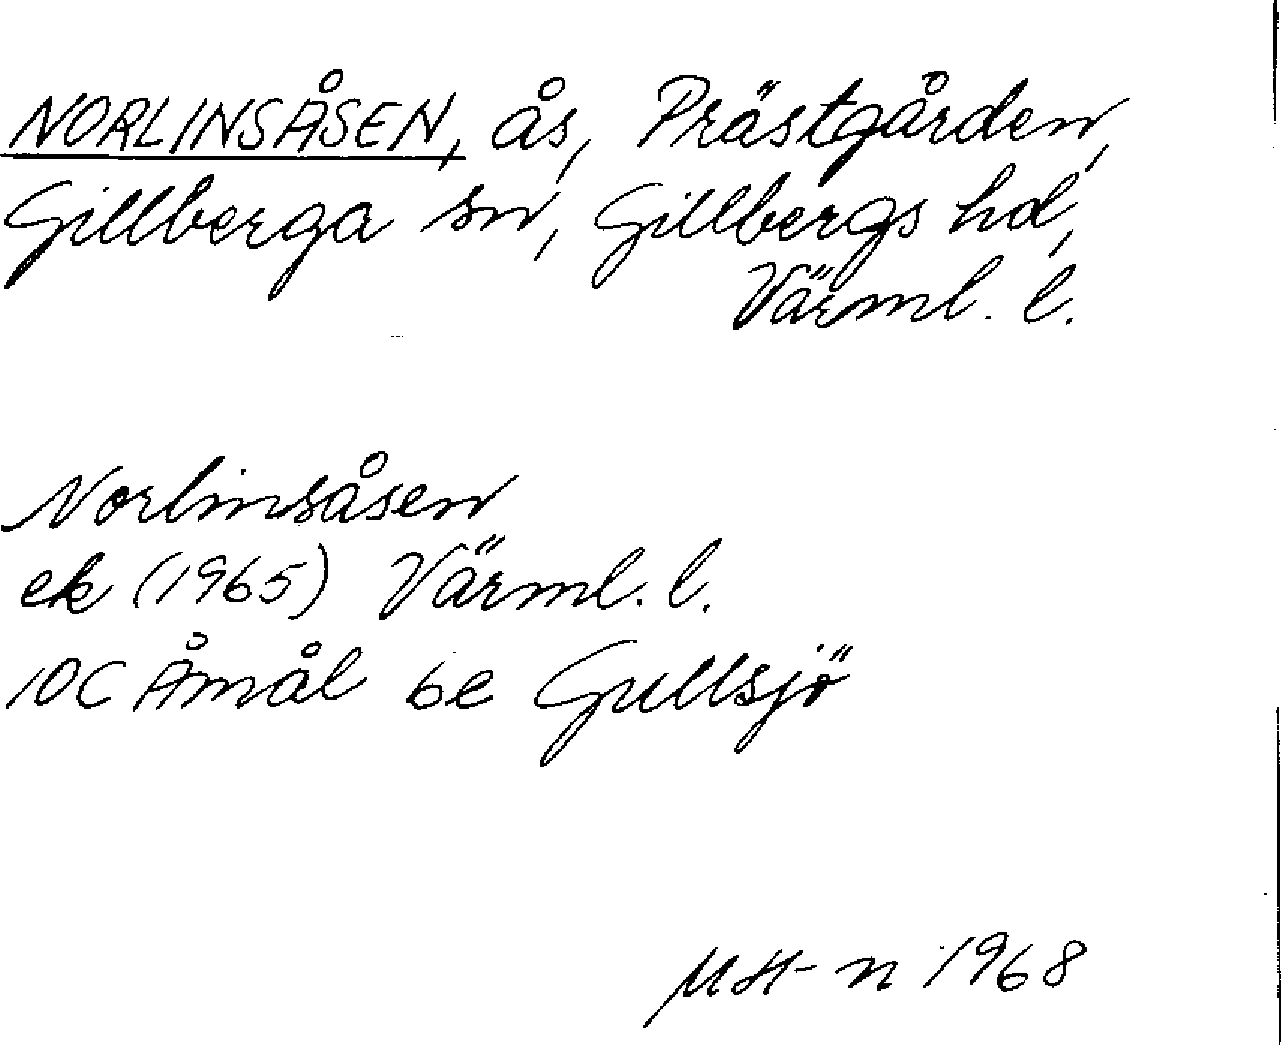 NORLINSÅSEN, ås, Prästgården,
Gillberga sn, Gillbergs hd,
Värml. l.
Norlinsåsen
ek (1965) Värml. l.
10C Åmål 6e Gullsjö
MH-n 1968